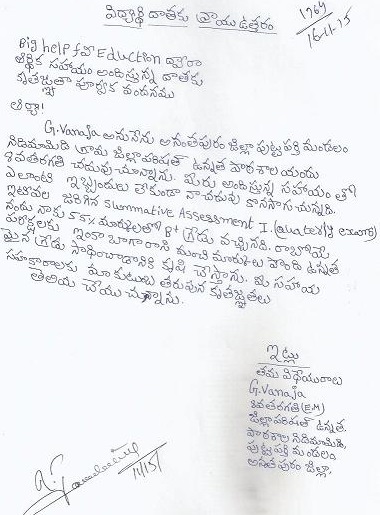 విద్యార్థి దాతకు వ్రాయు ఉత్తరం
1969
16-11-15
Big help for Eduction ద్వారా
ఆర్థిక సహాయం అందిస్తున్న దాతకు
కృతజ్ఞతా పూర్వక వందనము
ఆర్యా!
G.Vanaja అను నేను అనంతపురం జిల్లా పుట్టపర్తి మండలం
నిడిమామిడి గ్రామ జిల్లాపరిషత్ ఉన్నత పాఠశాల యందు
9వతరగతి చదువు చున్నాను. మీరు అందిస్తున్న సహాయం తో
ఎలాంటి ఇబ్బందులు లేకుండా నాచదువు కొనసాగుచున్నది.
ఇటీవల జరిగిన summative Assessment I. (quaterly exams)
నందు నాకు 55% మార్కులతో B+ గ్రేడు వచ్చినది. రాబోయే
పరీక్షలకు ఇంకా బాగా రాసి మంచి మార్కులు పొంది ఉన్నత
మైన గ్రేడు సాధించాడానికి కృషి చేస్తాను. మీ సహాయ
సహకారాలకు మా కుటుంబ తరుపున కృతజ్ఞతలు
తెలియ చేయు చున్నాను.
ఇట్లు
తమ విధేయురాలు
G.Vanaja
9వతరగతి (EM)
జిల్లాపరిషత్ ఉన్నత
పాఠశాల నిడిమామిడి,
పుట్టపర్తి మండలం
అనంతపురం జిల్లా.